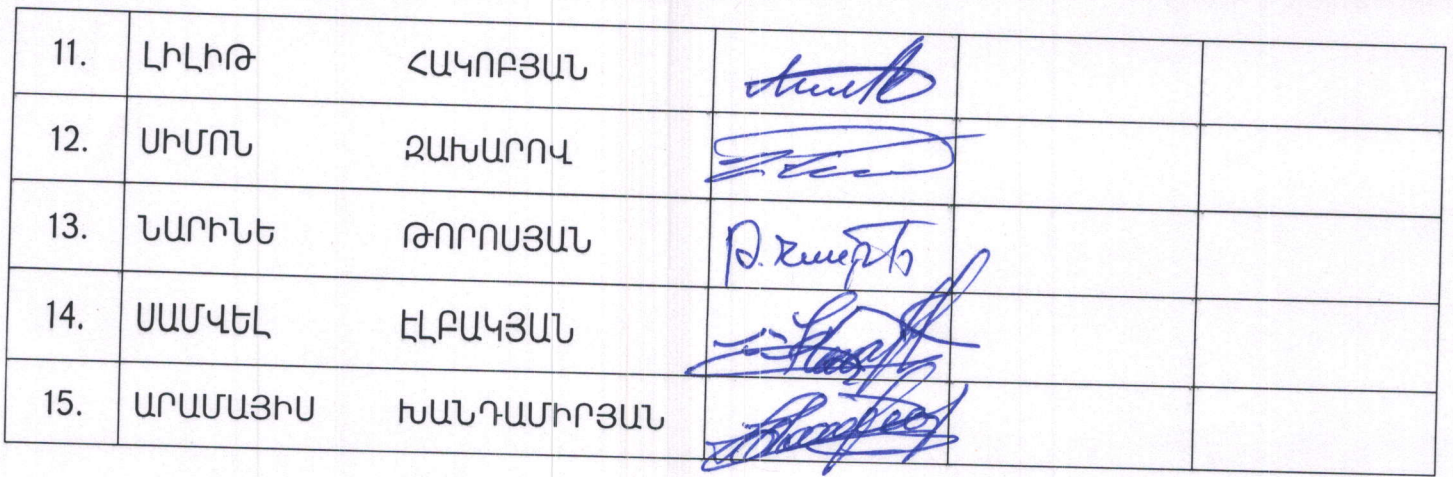 11. ԼԻԼԻԹ ՀԱԿՈԲՅԱՆ
12. ՍԻՄՈՆ ԶԱԽԱՐՈՎ
13. ՆԱՐԻՆԵ ԹՈՐՈՍՅԱՆ
14. ՍԱՄՎԵԼ ԷԼԲԱԿՅԱՆ
15. ԱՐԱՄԱՅԻՍ ԽԱՆԴԱՄԻՐՅԱՆ